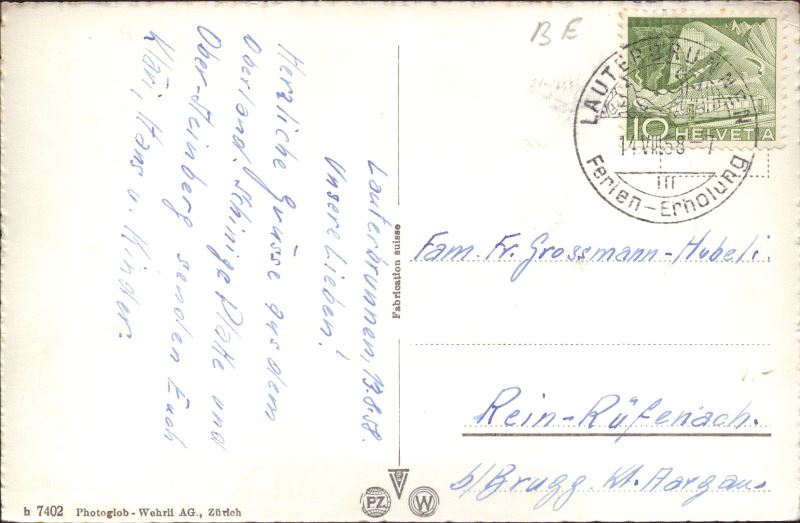 Lauterbrunnen, 13.8.58.
Unsere Lieben!
Herzliche Grüsse aus dem
Oberland. Schinige Platte und
Ober-Steinberg senden Euch
Kläri, Hans u. Kinder.
BE
LAUTERBRUNNEN
14.VIII.58-7
in
Ferien-Erholung
10 HELVETIA
Fam. Fr. Grossmann-Hubeli.
Rein-Rüfenach.
b/Brugg Kt. Aargau.
1.-
Fabrication suisse
h 7402 Photoglob-Wehrli AG., Zürich
PZ
W